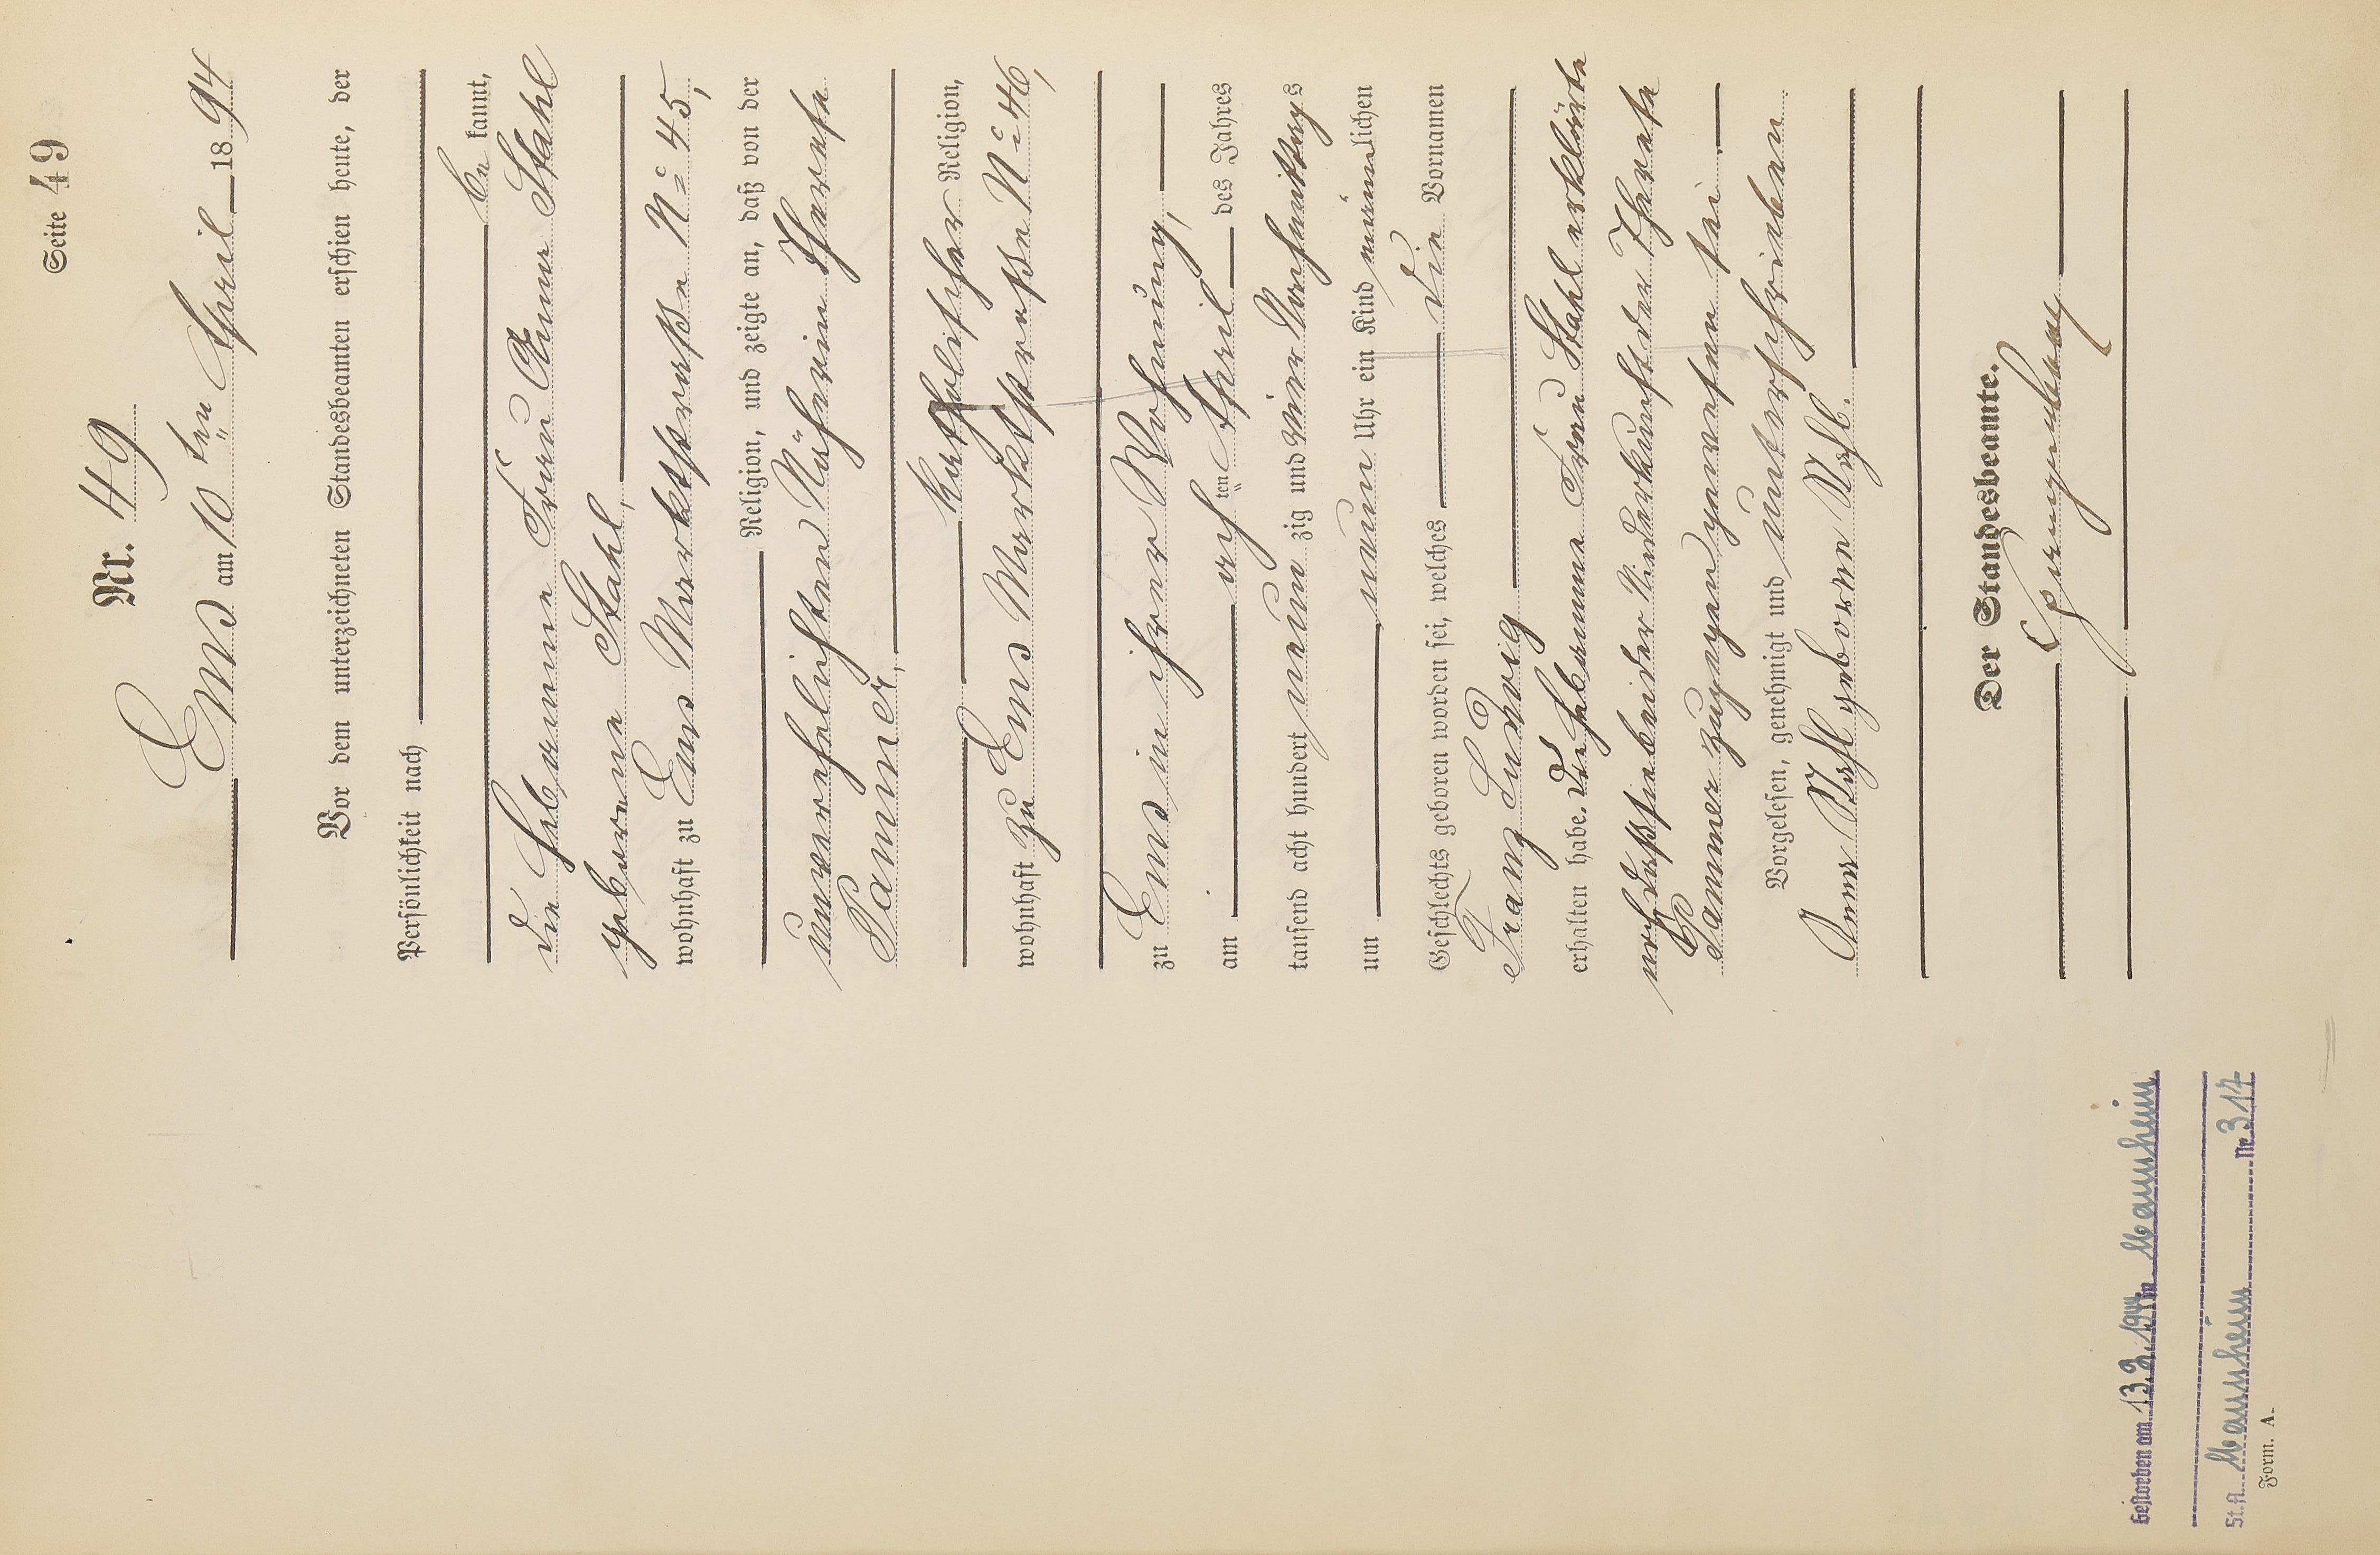 Seite 49
Nr. 49
Ems am 10ten April 1894
Vor dem unterzeichneten Standesbeamten erschien heute, der
Persönlichkeit nach
bekannt,
die Hebamme Frau Anna Stahl
geborene Stahl,
wohnhaft zu Ems Marktstraße No 45,
Religion, und zeigte an, daß von der
unverehelichten Näherin Therese
Pammer,
katholischer Religion,
wohnhaft zu Ems Marktstraße No 46,
zu Ems in ihrer Wohnung,
am acht ten April des Jahres
tausend acht hundert neun zig und vier Nachmittags
um neun Uhr ein Kind männlichen
Geschlechts geboren worden sei, welches die Vornamen
Franz Ludwig
erhalten habe. Die Hebamme Frau Stahl erklärte
noch daß sie bei der Niederkunft der Therese
Pammer zugegen gewesen sei.
Vorgelesen, genehmigt und unterschrieben
Anna Stahl geborene Stahl.
Der Standesbeamte.
Gestorben am 13.9.1944 in Mannheim
St.A. Mannheim Nr. 317
Form. A.